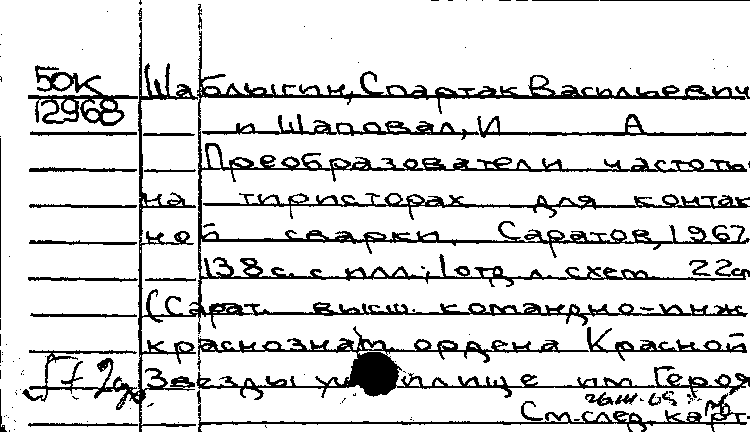 50К Шаблыгин, Спартак Васильевич
12968 и Шаповал, И А
Преобразователи частоты
на тиристорах для контак
ной сварки. Саратов, 1967
138 с. с илл.; 1 отд. л. схем 22см
(Сарат. высш. командно-инж
краснознам. ордена Красной
Звезды училище им Героя
См. след. карт.